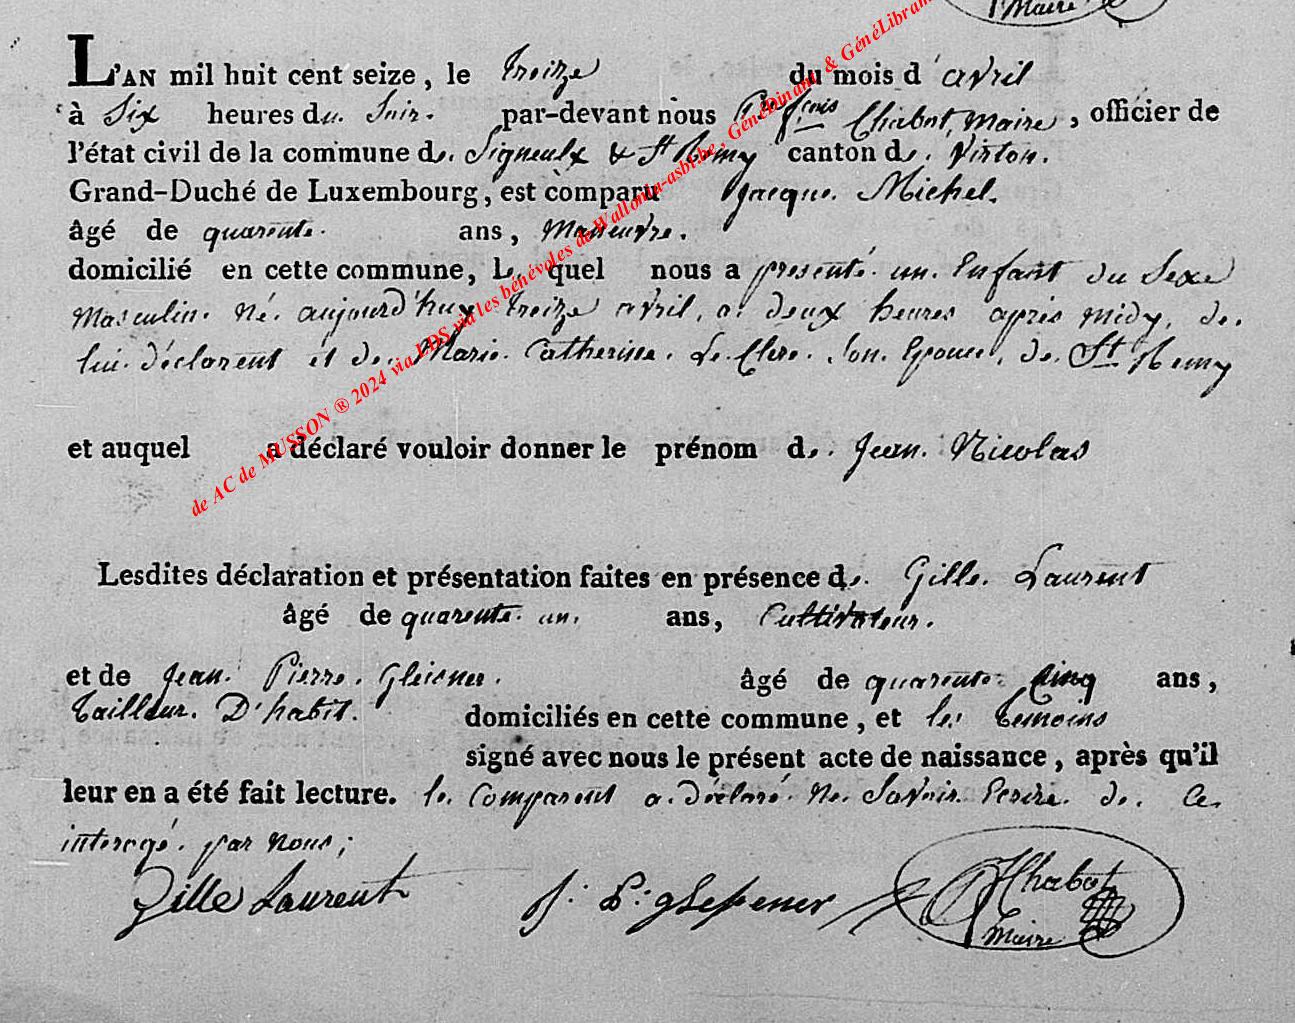 Maire
L'AN mil huit cent seize, le treize du mois d'avril
à Six heures du Soir. par-devant nous Pre fçois Chabot, maire, officier de
l'état civil de la commune de Signeulx & St Remy canton de Virton.
Grand-Duché de Luxembourg, est comparu Jacque Michel.
âgé de quarente ans, Maneuvre.
domicilié en cette commune, Le quel nous a presenté un Enfant du Sexe
Masculin né aujourd'huy treize avril, a deux heures après midy, de
lui déclarent et de Marie Catherine Le Clerc Son Epouse, de St Remy
et auquel a déclaré vouloir donner le prénom de Jean Nicolas
Lesdites déclaration et présentation faites en présence de Gille Laurent
âgé de quarente un ans, Cultivateur.
et de Jean Pierre Gleisner. âgé de quarente Cinq ans,
Tailleur D'habit. domiciliés en cette commune, et les temoins
signé avec nous le présent acte de naissance, après qu'il
leur en a été fait lecture. le Comparent a déclaré ne Savoir Ecrire de ce
interogé par nous;
Gille Laurent J. P. gLesener PfChabot
Maire
de AC de MUSSON ® 2024 via LDS via les bénévoles de Wallonia-asbl.be, GénéDinant & GénéLibram